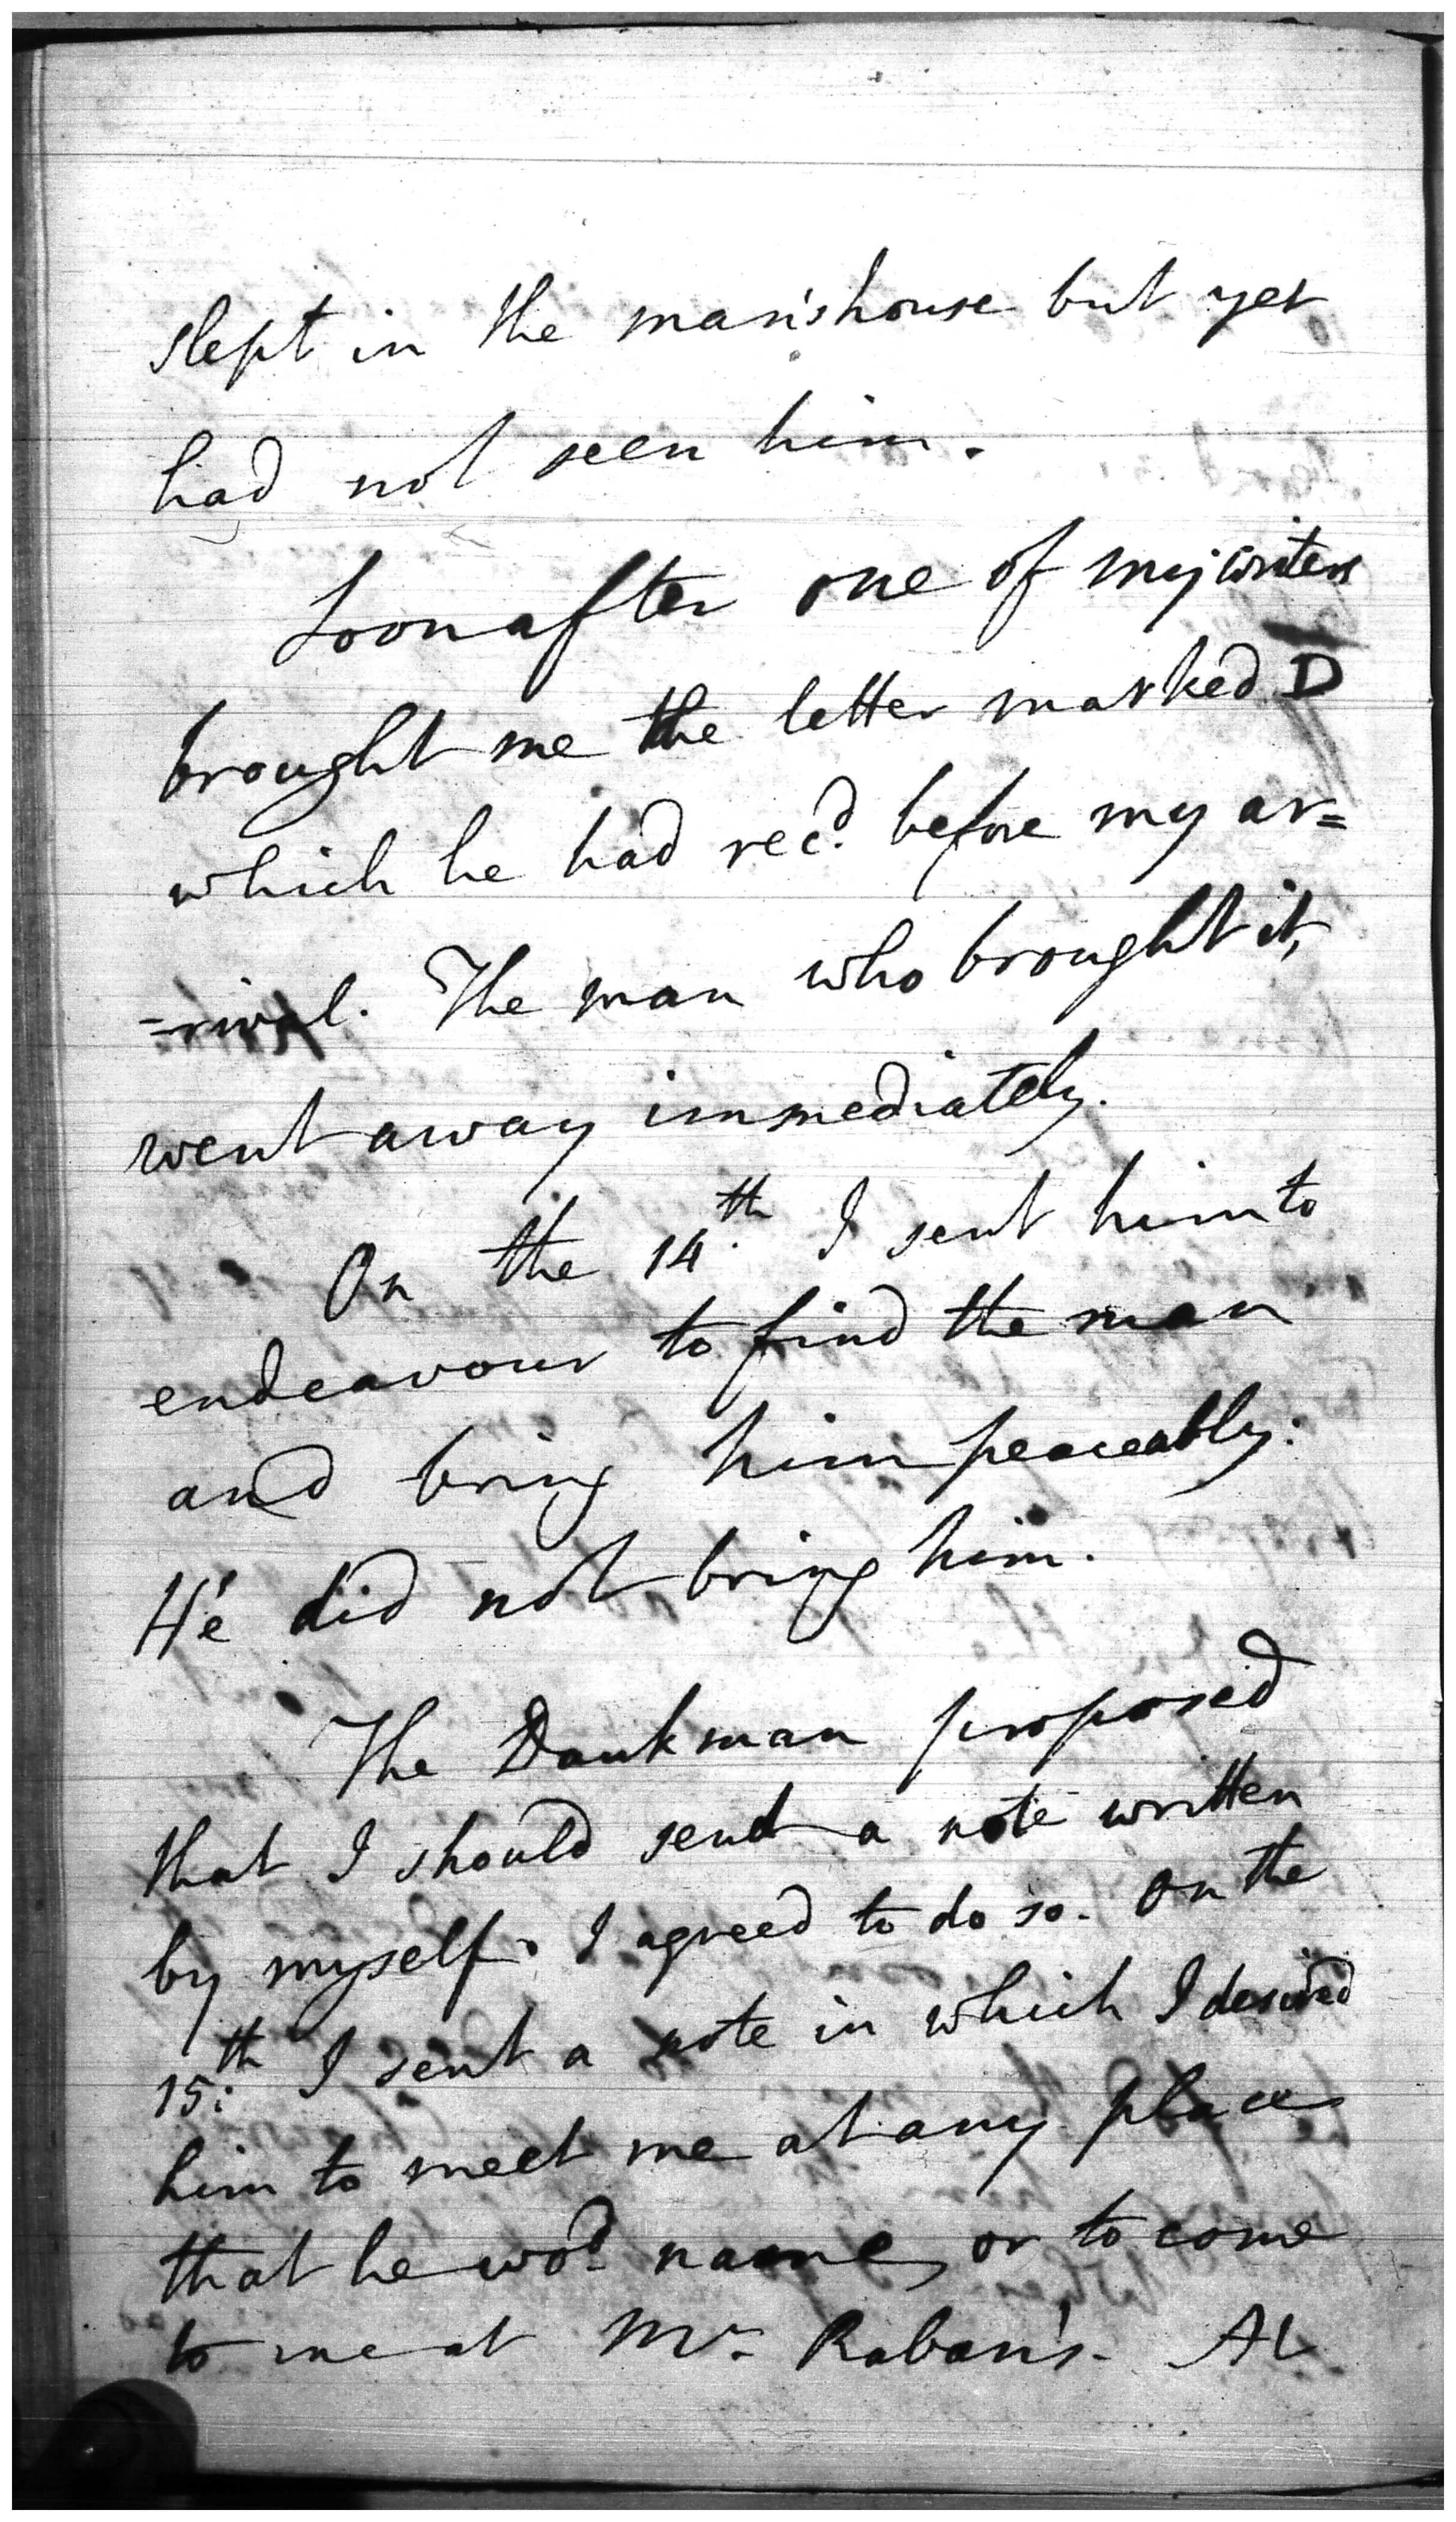 slept in the man's house but yet
had not seen him.
Soon after one of my writers
brought me the letter marked D
which he had recd. before my ar=
=rival. The man who brought it,
went away immediately.
On the 14th. I sent him to
endeavour to find the man
and bring him peaceably:
He did not bring him.
The Daukman proposed
that I should send a note written
by myself. I agreed to do so. On the
15th: I sent a note in which I desired
him to meet me at any place
that he wod. name, or to come
to me at Mr. Raban's. At